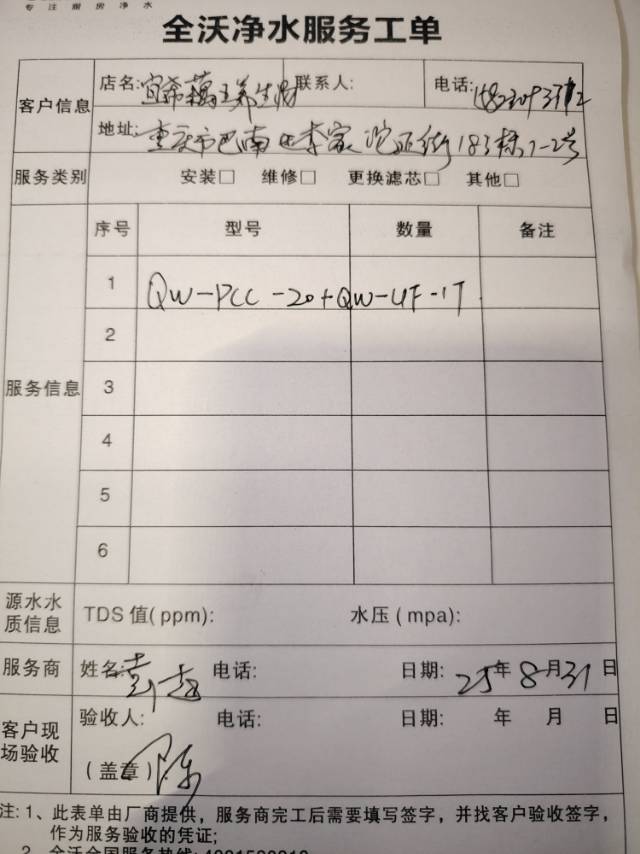 专注厨房净水
全沃净水服务工单
客户信息
店名: 联系人: 电话:
地址: 重庆市巴南区李家沱正街183栋1-2号
服务类别 安装□ 维修□ 更换滤芯□ 其他□
服务信息
序号 型号 数量 备注
1 QW-PCC-20+QW-UF-1T
2
3
4
5
6
源水水质信息 TDS 值(ppm): 水压(mpa):
服务商 姓名: 电话: 日期: 25年8月31日
客户现场验收
验收人: 电话: 日期: 年 月 日
(盖章) 陈
注: 1、此表单由厂商提供，服务商完工后需要填写签字，并找客户验收签字，
作为服务验收的凭证;
2、全沃全国服务热线: